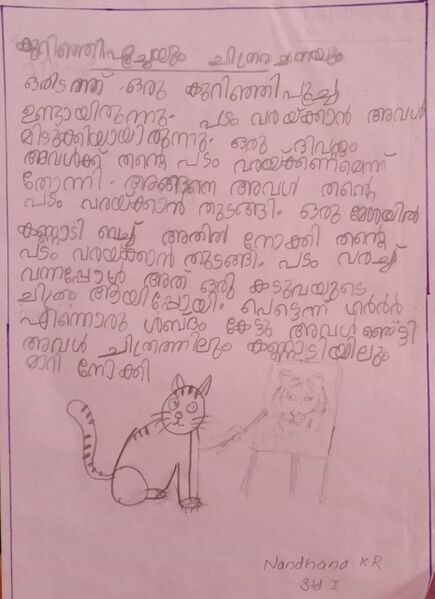 കുറിഞ്ഞിപൂച്ചയും ചിത്രരചനയും
ഒരിടത്ത് ഒരു കുറിഞ്ഞിപൂച്ച
ഉണ്ടായിരുന്നു. പടം വരയ്ക്കാൻ അവൾ
മിടുക്കിയായിരുന്നു. ഒരു ദിവസം
അവൾക്ക് തന്റെ പടം വരയ്ക്കണമെന്ന്
തോന്നി. അങ്ങനെ അവൾ തന്റെ
പടം വരയ്ക്കാൻ തുടങ്ങി. ഒരു മേശയിൽ
കണ്ണാടി വെച്ച് അതിൽ നോക്കി തന്റെ
പടം വരയ്ക്കാൻ തുടങ്ങി. പടം വരച്ച്
വന്നപ്പോൾ അത് ഒരു കടുവയുടെ
ചിത്രം ആയിപ്പോയി. പെട്ടെന്ന് ഗർർർ
എന്നൊരു ശബ്ദം കേട്ടു അവൾ ഞെട്ടി
അവൾ ചിത്രത്തിലും കണ്ണാടിയിലും
മാറി നോക്കി
Nandhana K R
Std I